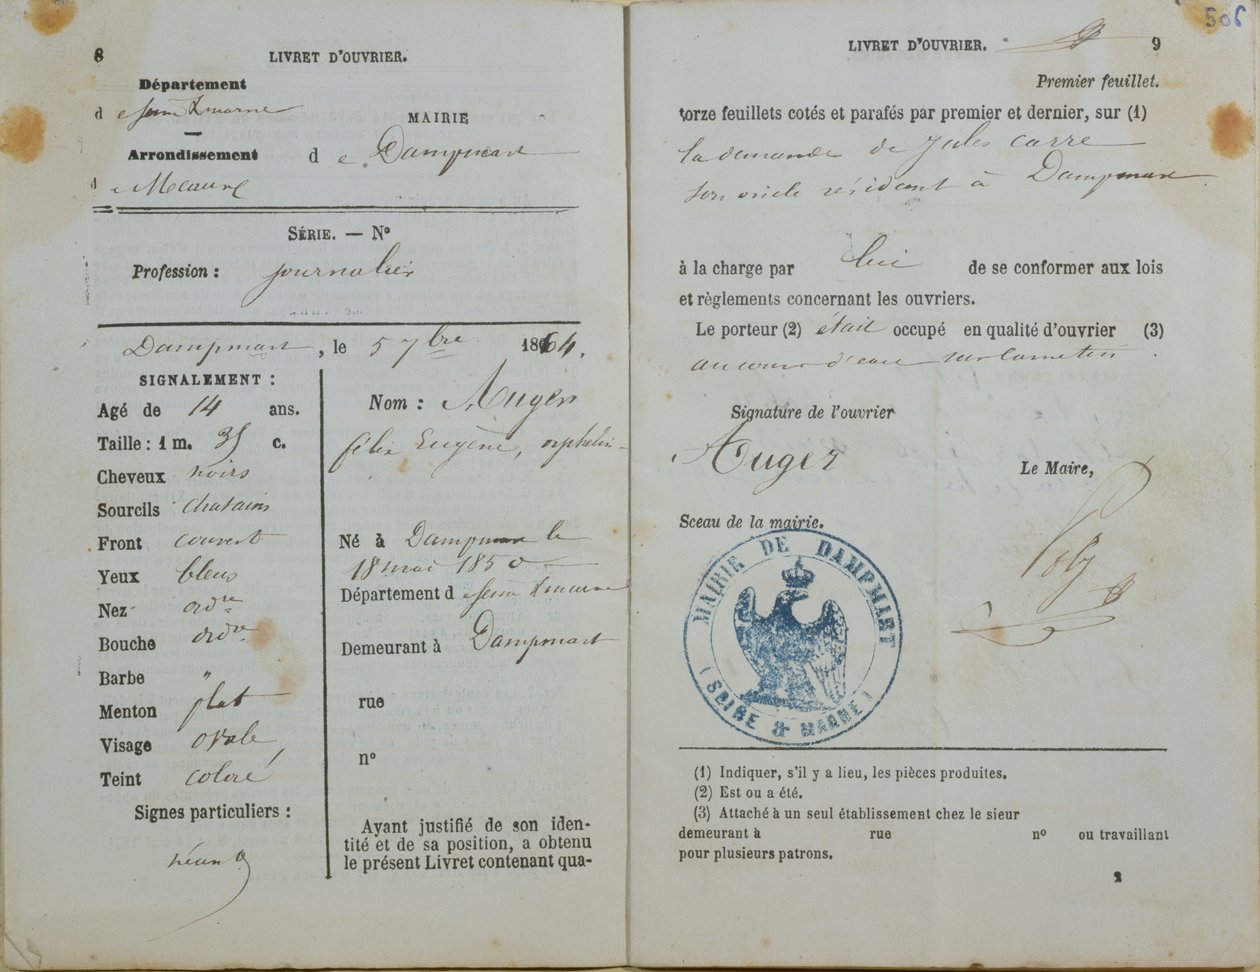 506
8 LIVRET D'OUVRIER.
Département
de Seine & marne
MAIRIE
Arrondissement
de Dampmart
de Meaux
SÉRIE. — Nº
Profession : journalier
Dampmart, le 5 7bre 1864.
SIGNALEMENT :
Agé de 14 ans.
Taille : 1 m. 35 c.
Cheveux noirs
Sourcils chatains
Front couvert
Yeux bleus
Nez ordre
Bouche ordre
Barbe "
Menton plat
Visage ovale
Teint coloré
Signes particuliers :
néant
Nom : Auger
félix Eugène, orphelin
Né à Dampmart le
18 mai 1850
Département de Seine & marne
Demeurant à Dampmart
rue
nº
Ayant justifié de son iden-
tité et de sa position, a obtenu
le présent Livret contenant qua-
LIVRET D'OUVRIER. 9
Premier feuillet.
torze feuillets cotés et parafés par premier et dernier, sur (1)
la demande de Jules carre
son oncle résidant à Dampmart
à la charge par lui de se conformer aux lois
et règlements concernant les ouvriers.
Le porteur (2) était occupé en qualité d'ouvrier (3)
au cours d'eau
Signature de l'ouvrier
Auger
Le Maire,
Sceau de la mairie.
MAIRIE DE DAMPMART
(SEINE & MARNE)
(1) Indiquer, s'il y a lieu, les pièces produites.
(2) Est ou a été.
(3) Attaché à un seul établissement chez le sieur
demeurant à rue nº ou travaillant
pour plusieurs patrons.
2